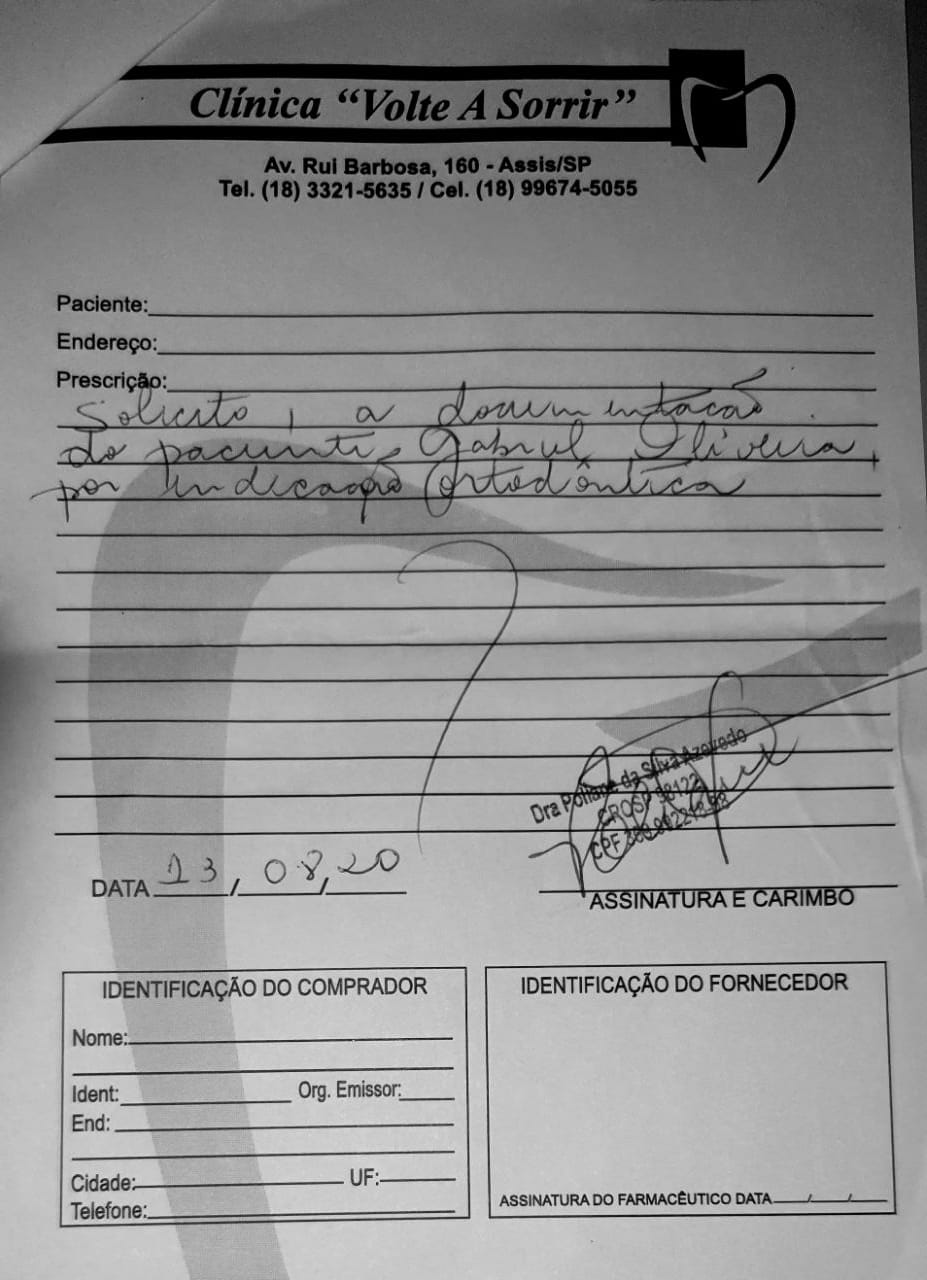 Clínica “Volte A Sorrir”
Av. Rui Barbosa, 160 - Assis/SP
Tel. (18) 3321-5635 / Cel. (18) 99674-5055
Paciente:
Endereço:
Prescrição:
Solicito, a documentação
do paciente Gabriel Oliveira,
por indicação Ortodôntica
Dra Poliane da Silva Azevedo
CROSP 98122
CPF
DATA 13/08/20
ASSINATURA E CARIMBO
IDENTIFICAÇÃO DO COMPRADOR
Nome:
Ident: Org. Emissor:
End:
Cidade: UF:
Telefone:
IDENTIFICAÇÃO DO FORNECEDOR
ASSINATURA DO FARMACÊUTICO DATA / /